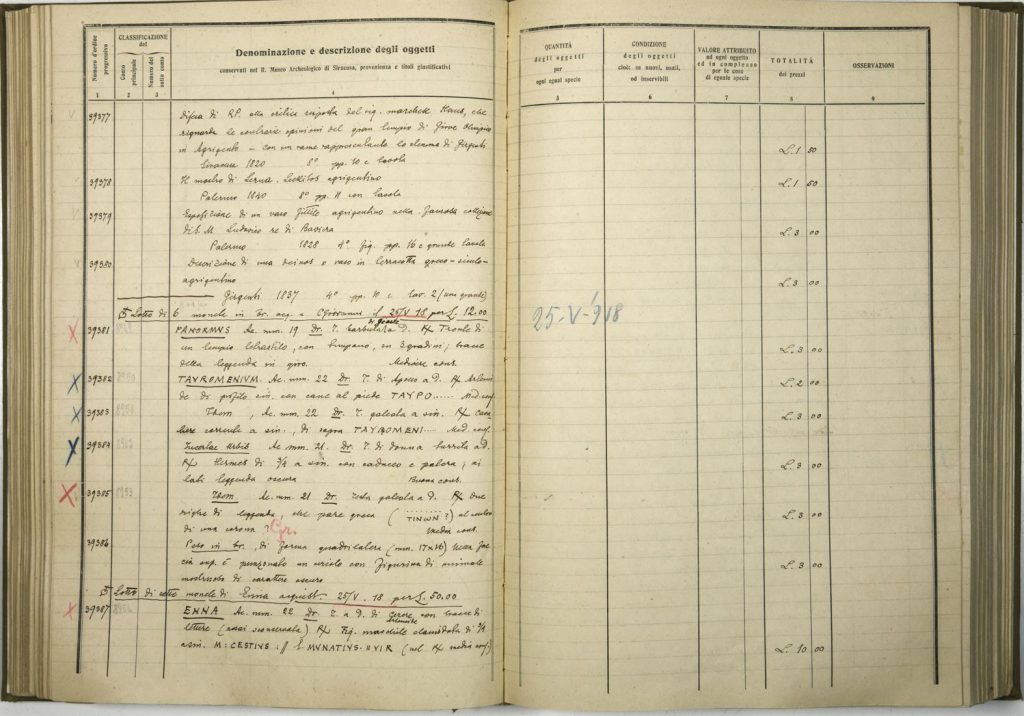 Numero d'ordine progressivo
CLASSIFICAZIONE del
Conto principale
Numero del sotto conto
Denominazione e descrizione degli oggetti
conservati nel R. Museo Archeologico di Siracusa, provenienza e titoli giustificativi
1 2 3 4
39377 difesa di R.P. alla critica risposta del sig. marchese Haus, che
riguarda le contrarie opinioni del gran tempio di Giove Olimpico
in Agrigento - con un rame rappresentante lo stemma di Girgenti
1820 8° pp. 10 e tavola
39378 Il mostro di Lerna. Lekitos agrigentino
Palermo 1840 8° pp. 11 con tavola
39379 Esposizione di un vaso fittile agrigentino nella famosa collezione
di S. M. Ludovico re di Baviera
Palermo 1828 4° fig. pp. 16 e grande tavola
39380 Descrizione di una deinos o vaso in terracotta greco-siculo-
agrigentino
Girgenti 1837 4° pp. 10 e tav. 2 (una grande)
Lotto di 6 monete in br. acq. 25/V 18 per L. 12.00
39381 PANORMUS Ae. mm. 19 Dr. T. barbuta a D. Fronte di
un tempio tetrastilo, con timpano, su 3 gradini; tracce
della leggenda in giro. Mediocre cons.
39382 TAYROMENIVM Ae. mm 22 Dr. T. di Apollo a D. Artemi
de di profilo sin. con cane al piede TAYPO..... Med. conf.
39383 Idem, Ae. mm. 22 Dr. T. galeata a sin. cava
liere corrente a sin., di sopra TAYROMENI.... Med. conf.
39384 Incertae Urbis Ae mm. 21. Dr. T. di donna turrita a d.
Hermes di 3/4 a sin. con caduceo e patera; ai
lati leggenda oscura Buona cons.
39385 Idem Ae. mm. 21 Dr. Testa galeata a D. due
righe di leggenda, che pare greca (TINWN?) al centro
di una corona? Media cons.
Gr.
39386 Peso in br., di forma quadrilatera (mm. 17x16) Nella fac
cia sup. è punzonato un circolo con figurina di animale
di carattere oscuro
Lotto di sette monete di Enna acquist. 25/V. 18 per L. 50.00
39387 ENNA Ae. mm. 22 Dr. T. a D. di Cerere con tracce di
lettere (assai sconservata) Fig. maschile clamidata di 3/4
a sin. M: CESTIUS : MVNATIVS. IIVIR (nel media conf)
QUANTITÀ degli oggetti per ogni egual specie
CONDIZIONE degli oggetti cioè: se nuovi, usati, od inservibili
VALORE ATTRIBUITO ad ogni oggetto ed in complesso per le cose di eguale specie
TOTALITÀ dei prezzi
OSSERVAZIONI
5 6 7 8 9
L. 1 50
L. 1 50
L. 3 00
L. 3 00
25-V-918
L. 3 00
L. 2 00
L. 3 00
L. 3 00
L. 3 00
L. 3 00
L. 10 00